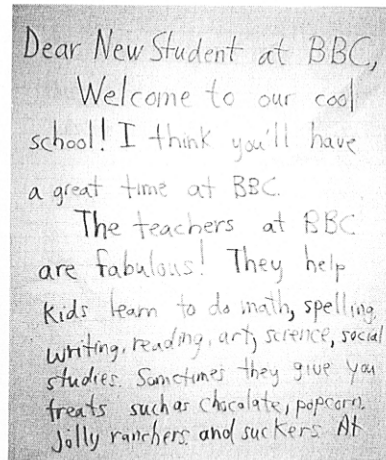 Dear New Student at BBC,
Welcome to our cool
school! I think you'll have
a great time at BBC.
The teachers at BBC
are fabulous! They help
kids learn to do math, spelling,
writing, reading, art, science, social
studies. Sometimes they give you
treats such as chocolate, popcorn,
jolly ranchers and suckers. At